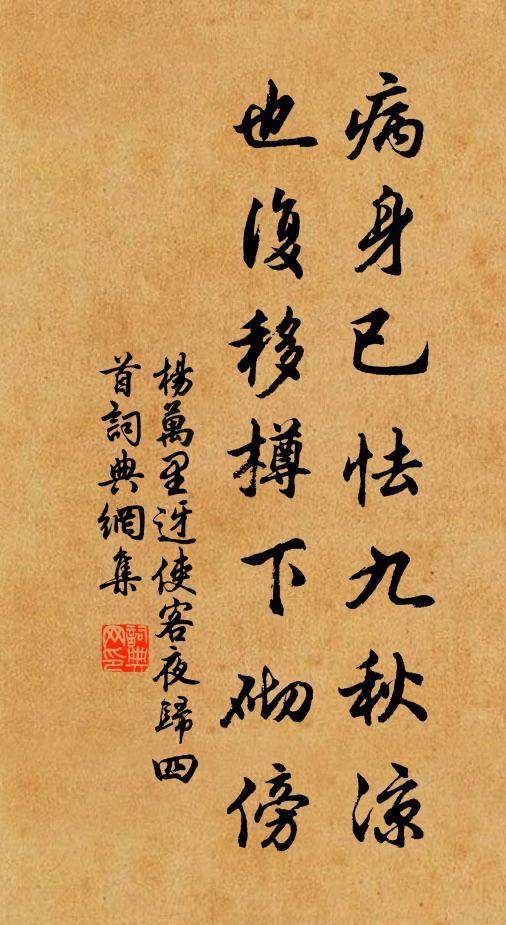 病身已怯九秋凉
也復移樽下砌傍
楊萬里迓使客夜歸四
首詞典網集
詞典
网印